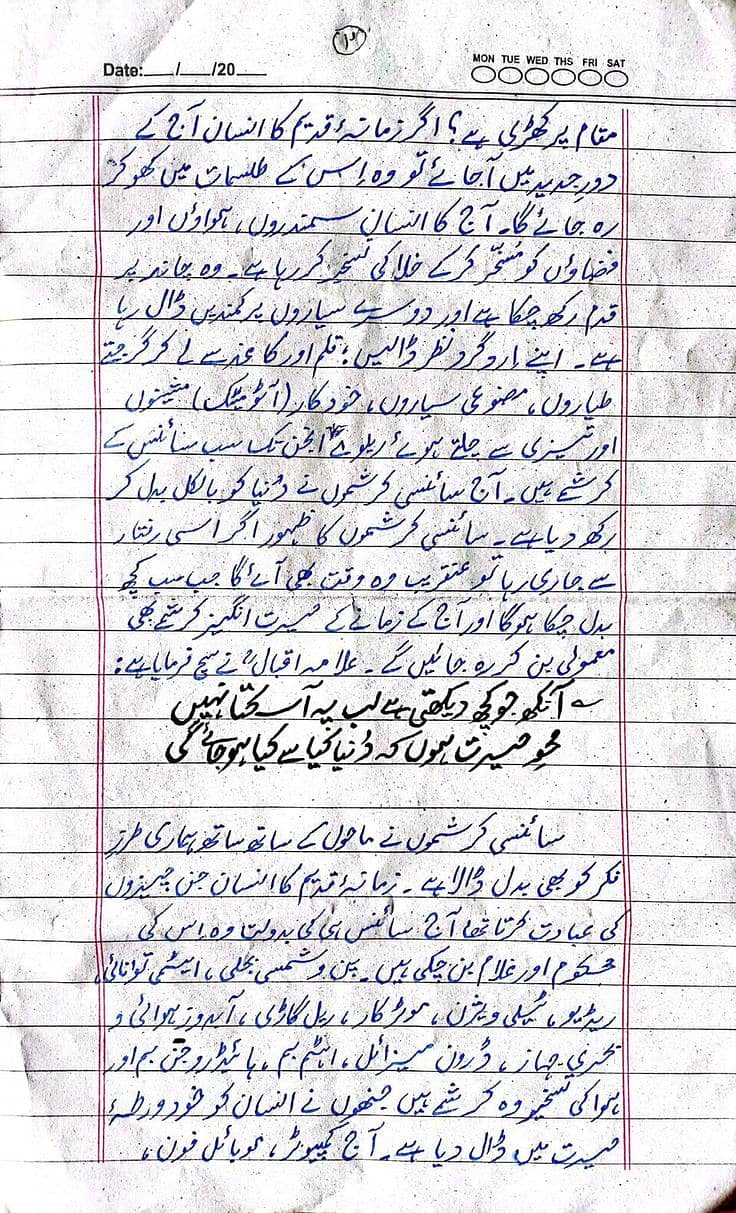 ۱۲
Date:___/___/20___
MON TUE WED THS FRI SAT
مقام پر کھڑی ہے؟ اگر زمانۂ قدیم کا انسان آج کے
دورِ جدید میں آ جائے تو وہ اِس کے طلسمات میں کھو کر
رہ جائے گا۔ آج کا انسان سمندروں، ہواؤں اور
فضاؤں کو مُسخّر کر کے خلا کی تسخیر کر رہا ہے۔ وہ چاند پر
قدم رکھ چکا ہے اور دوسرے سیاروں پر کمندیں ڈال رہا
ہے۔ اپنے اردگرد نظر ڈالیں؛ قلم اور کاغذ سے لے کر گرجتے
طیاروں، مصنوعی سیاروں، خودکار (آٹومیٹک) مشینوں
اور تیزی سے چلتے ہوئے ریلوے انجن تک سب سائنس کے
کرشمے ہیں۔ آج سائنسی کرشموں نے دُنیا کو بالکل بدل کر
رکھ دیا ہے۔ سائنسی کرشموں کا ظہور اگر اسی رفتار
سے جاری رہا تو عنقریب وہ وقت بھی آئے گا جب سب کچھ
بدل چکا ہوگا اور آج کے زمانے کے حیرت انگیز کرشمے بھی
معمولی بن کر رہ جائیں گے۔ علامہ اقبالؒ نے سچ فرمایا ہے:
؎ آنکھ جو کچھ دیکھتی ہے لب پہ آ سکتا نہیں
محوِ حیرت ہوں کہ دُنیا کیا سے کیا ہو جائے گی
سائنسی کرشموں نے ماحول کے ساتھ ساتھ ہماری طرزِ
فکر کو بھی بدل ڈالا ہے۔ زمانۂ قدیم کا انسان جن چیزوں
کی عبادت کرتا تھا آج سائنس ہی کی بدولت وہ اِس کی
محکوم اور غلام بن چکی ہیں۔ پن و شمسی بجلی، ایٹمی توانائی،
ریڈیو، ٹیلی ویژن، موٹر کار، ریل گاڑی، آبدوز ہوائی و
بحری جہاز، ڈرون میزائل، ایٹم بم، ہائیڈروجن بم اور
ہوا کی تسخیر وہ کرشمے ہیں جنھوں نے انسان کو خود ورطۂ
حیرت میں ڈال دیا ہے۔ آج کمپیوٹر، موبائل فون،